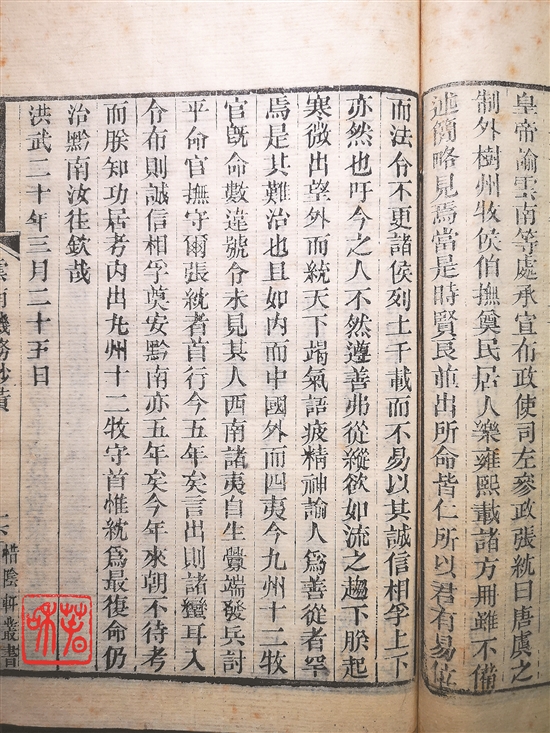 皇帝諭雲南等處承宣布政使司左參政張紞曰唐虞之
制外樹州牧侯伯撫奠民居人樂雍熙載諸方冊雖不備
述簡略見焉當是時賢良並出所命皆仁所以君有易位
而法令不更諸侯列上千載而不易以其誠信相孚上下
亦然也吁今之人不然遵善弗從縱欲如流之趨下朕起
寒微出望外而統天下竭氣語疲精神諭人爲善從者罕
焉是其難治也且如內而中國外而四夷今九州十二牧
官旣命數違號令未見其人西南諸夷自生釁端發兵討
平命官撫守爾張紞者首行今五年矣言出則諸蠻耳入
令布則誠信相孚奠安黔南亦五年矣今年來朝不待考
而朕知功居考內出九州十二牧守首惟紞爲最復命仍
治黔南汝往欽哉
洪武二十年三月二十五日
雲南機務抄黃
惜陰軒叢書